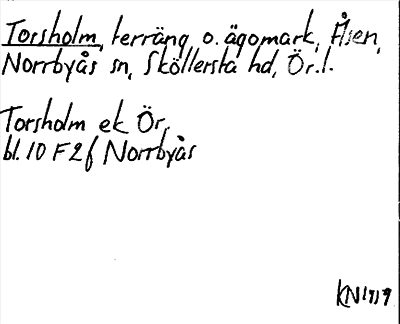 Torsholm, terräng o. ägomark, Åsen,
Norrbyås sn, Sköllersta hd, Ör.l.
Torsholm ek Ör,
bl. 10 F 2 f Norrbyås